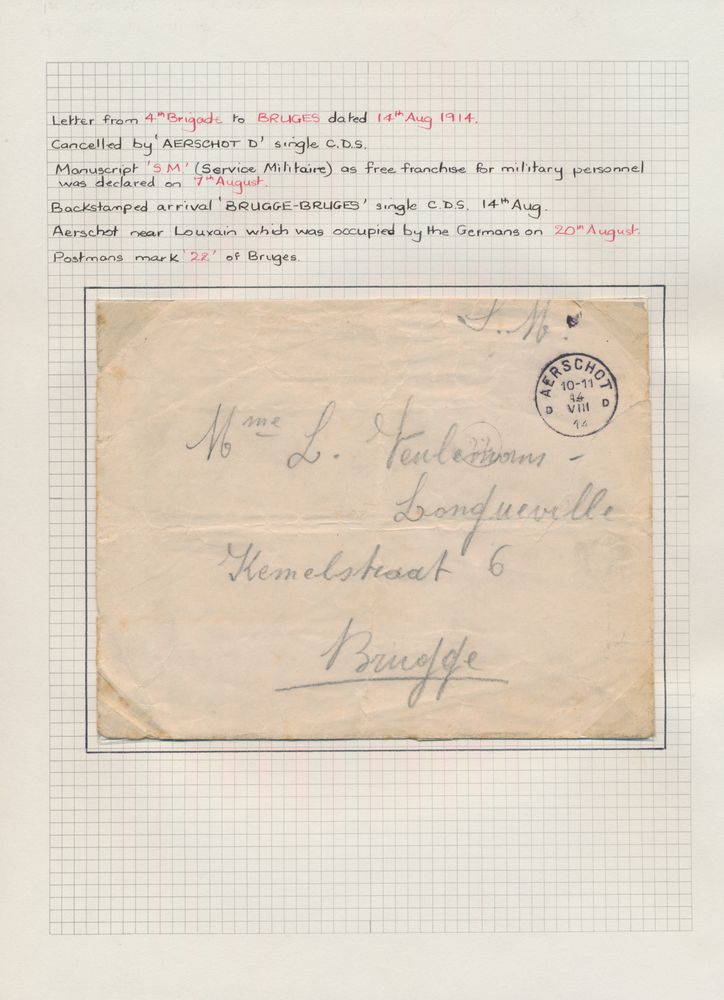 Letter from 4th Brigade to BRUGES dated 14th Aug 1914.
Cancelled by 'AERSCHOT D' single C.D.S.
Manuscript 'S M' (Service Militaire) as free franchise for military personnel
was declared on 7th August.
Backstamped arrival 'BRUGGE-BRUGES' single C.D.S. 14th Aug.
Aerschot near Louvain which was occupied by the Germans on 20th August.
Postmans mark '22' of Bruges.
S. M.
AERSCHOT
10-11
14
D VIII D
14
Mme L. Veulemans -
Longueville
Kemelstraat 6
Brugge